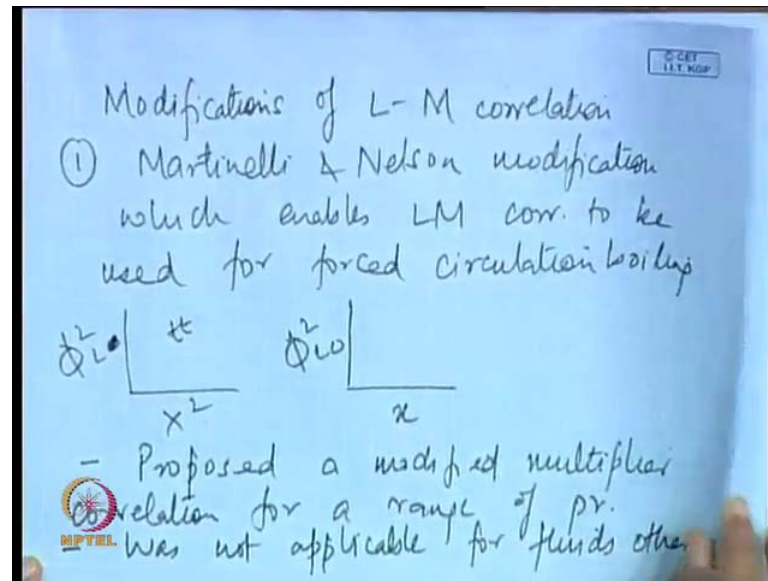 © CET
I.I.T. KGP
Modifications of L-M correlation
① Martinelli & Nelson modification
which enables LM corr. to be
used for forced circulation boiling
Φ²L tt Φ²LO
X² x
- Proposed a modified multiplier
correlation for a range of pr.
- Was not applicable for fluids other
NPTEL